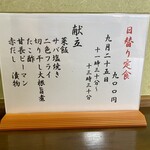 日替り定食
九〇〇円
九月二十五日
十一時三十分
十三時三十分
献立
菜飯
サバ塩焼き
二色フライ
切り干し大根旨煮
たこ酢
甘長ピーマン
赤だし 漬物